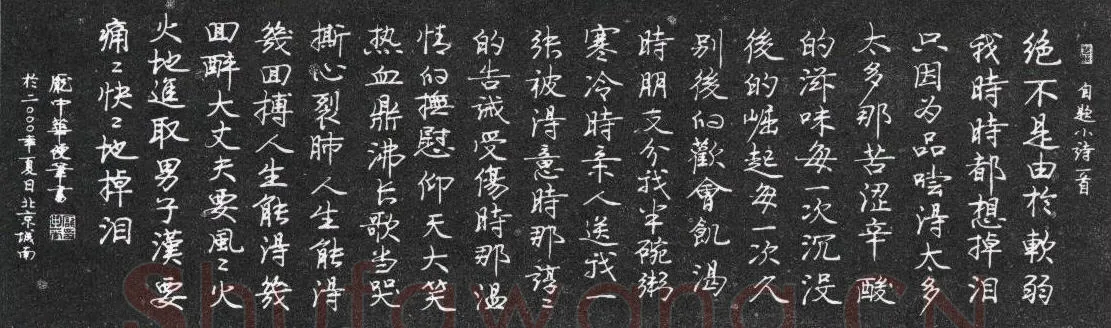 自题小诗一首
絕不是由於軟弱
我時時都想掉泪
只因为品嚐得太多
太多那苦涩辛酸
的滋味每一次沉没
後的崛起每一次久
别後的歡會飢渴
時朋友分我半碗粥
寒冷時亲人送我一
张被得意時那諄〻
的告诫受傷時那温
情的撫慰仰天大笑
热血鼎沸长歌当哭
撕心裂肺人生能得
幾回搏人生能得幾
回醉大丈夫要風〻火
火地進取男子漢要
痛〻快〻地掉泪
庞中華硬筆書
於二〇〇〇年夏日北京城南
Shufawang.CN